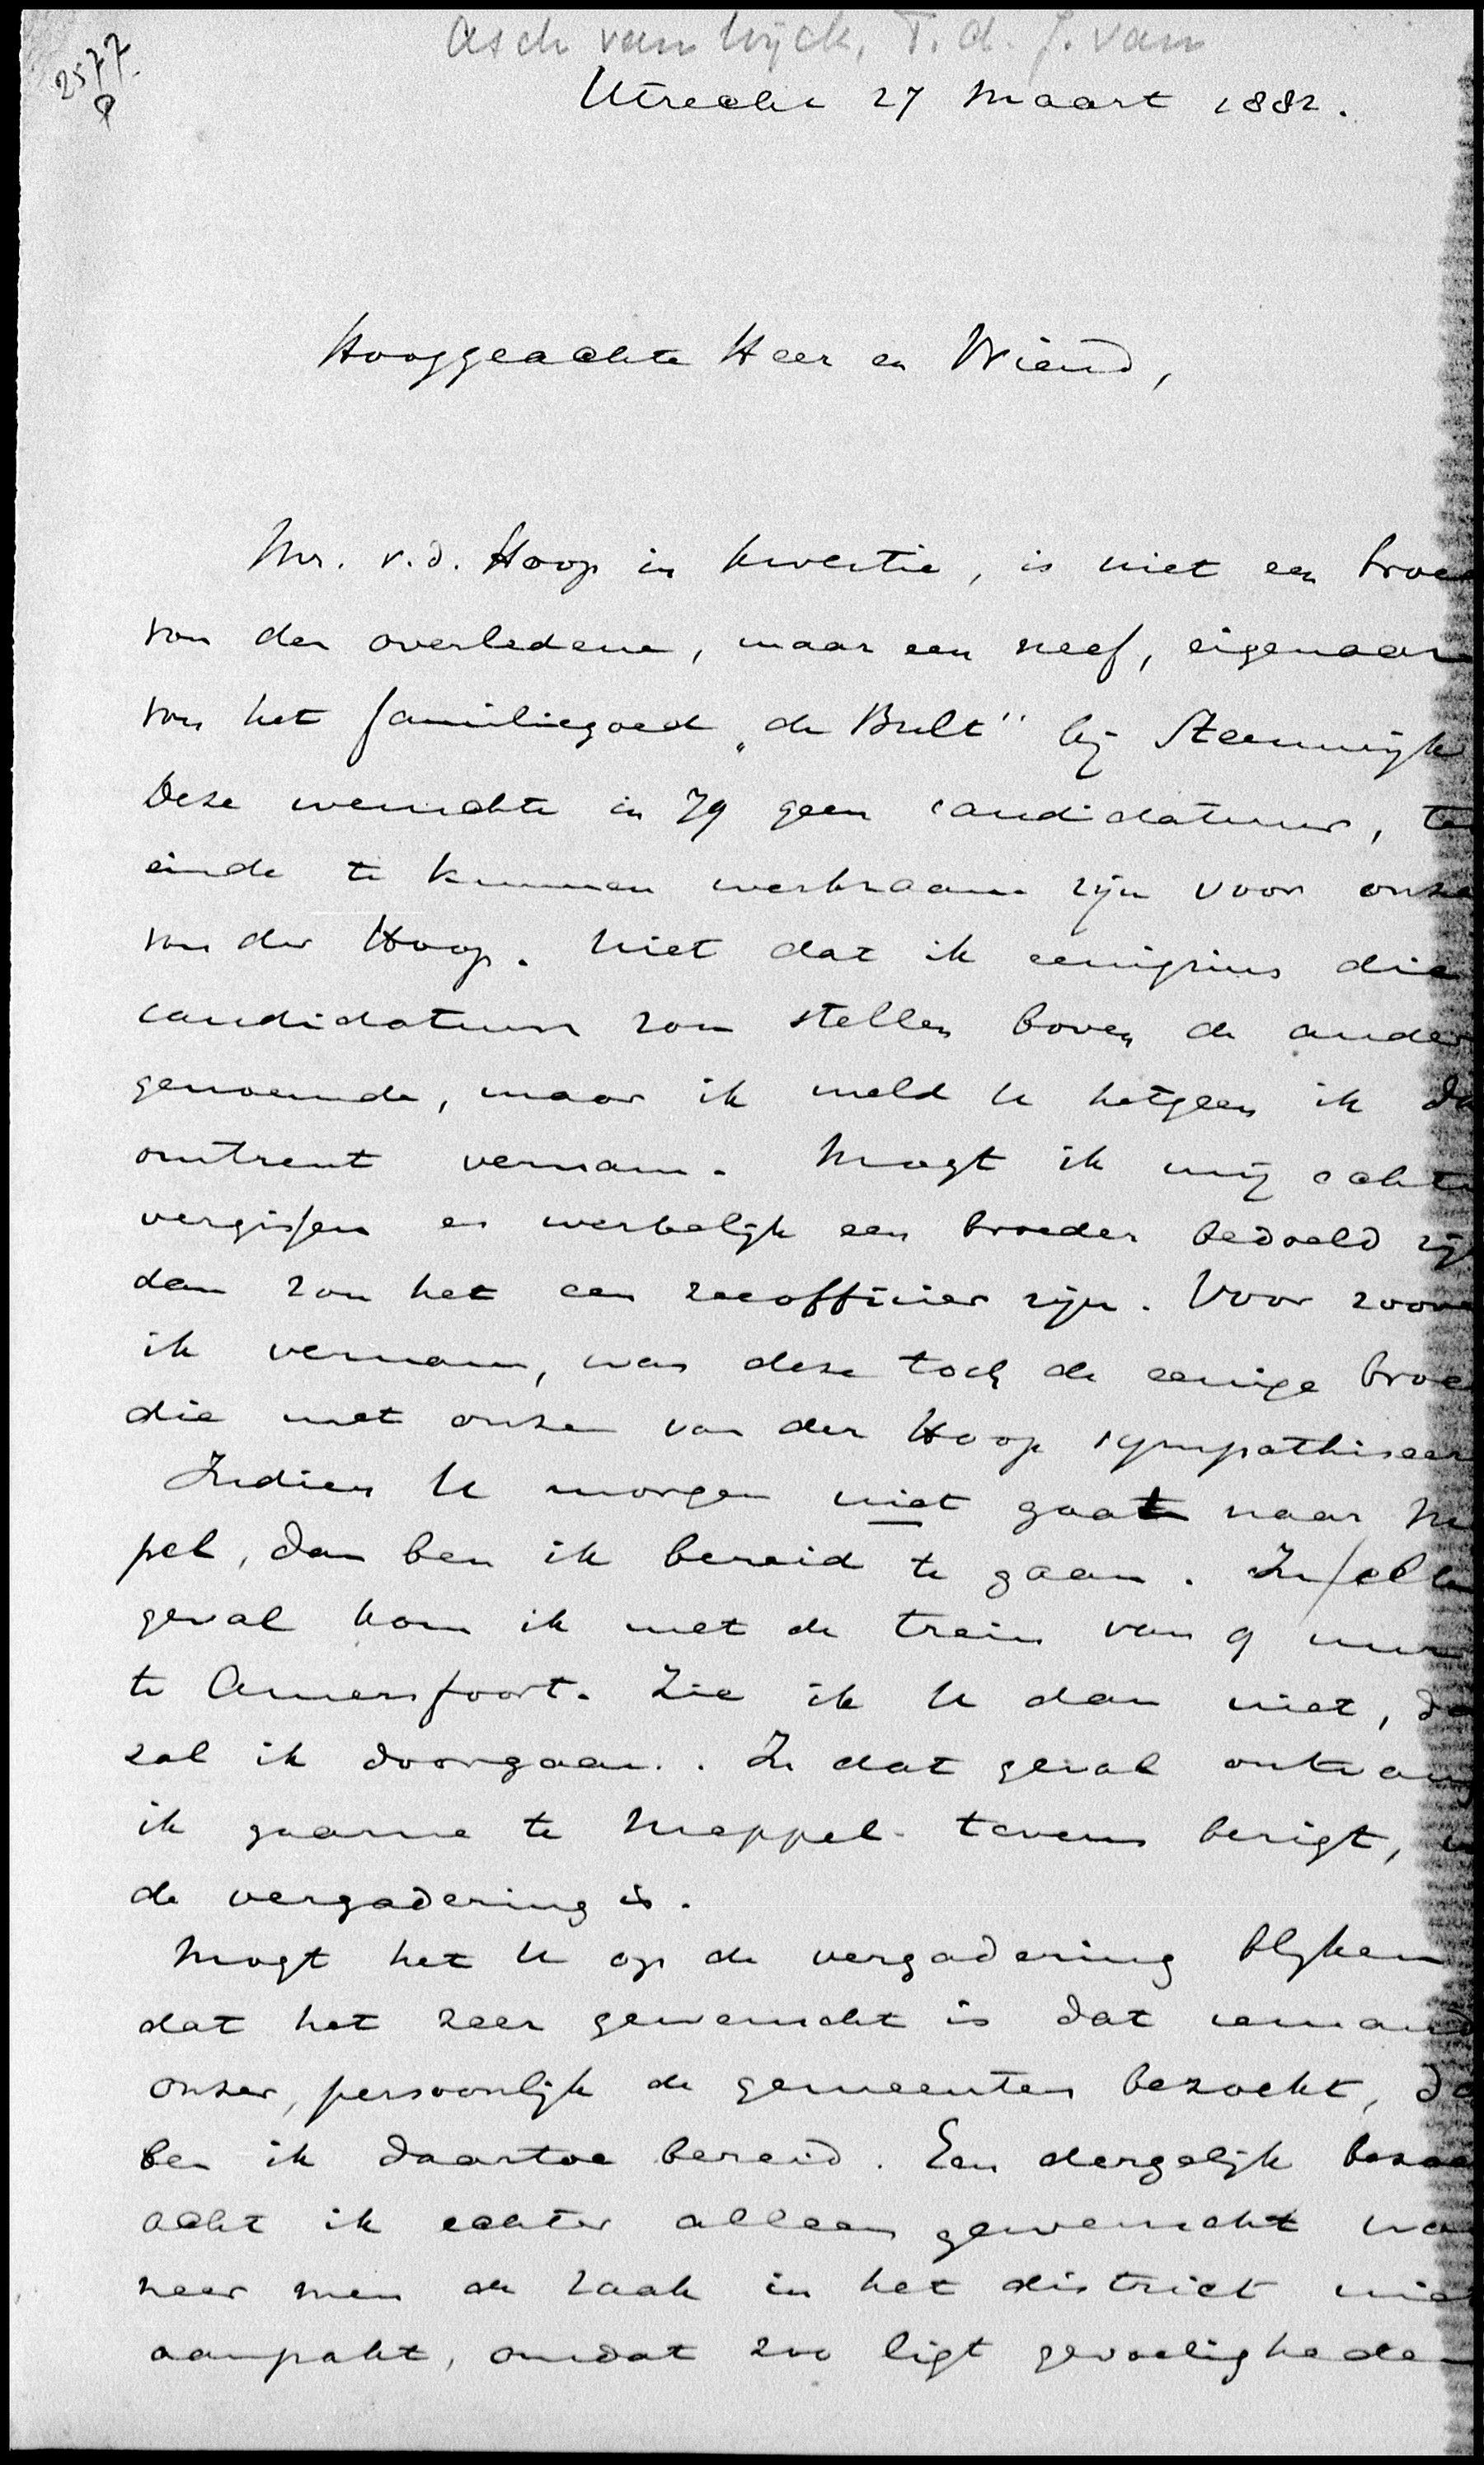 Asch van Wijck, T. d. J. van
2577
Utrecht 27 Maart 1882.
Hooggeachte Heer en Vriend,
Mr. v.d. Hoop in kwestie, is niet een broe
van den overledene, maar een neef, eigenaar
van het familiegoed „de Bult" bij Steenwijk
Deze wenschte in 79 geen candidatuur, ten
einde te kunnen werkzaam zijn voor onze
van der Hoop. Niet dat ik eenigzins die
candidatuur zou stellen boven de ander
genoemde, maar ik meld U hetgeen ik d
omtrent vernam. Mogt ik mij echte
vergissen en werkelijk een broeder bedoeld zij
dan zou het een zeeofficier zijn. Voor zoove
ik vernam, was deze toch de eenige broe
die met onzen van der Hoop sympathiseer
Indien U morgen niet gaat naar Me
pel, dan ben ik bereid te gaan. In
geval kom ik met de trein van 9 uur
te Amersfoort. Zie ik U dan niet, da
zal ik doorgaan. In dat geval ontvang
ik gaarne te Meppel tevens berigt, w
de vergadering is.
Mogt het U op de vergadering blijken
dat het zeer gewenscht is dat iemand
onzer, persoonlijk de gemeenten bezoekt, da
ben ik daartoe bereid. Een dergelijk bezoe
acht ik echter alleen gewenscht wa
neer men de zaak in het district nie
aanpakt, omdat zoo ligt gevoeligheden